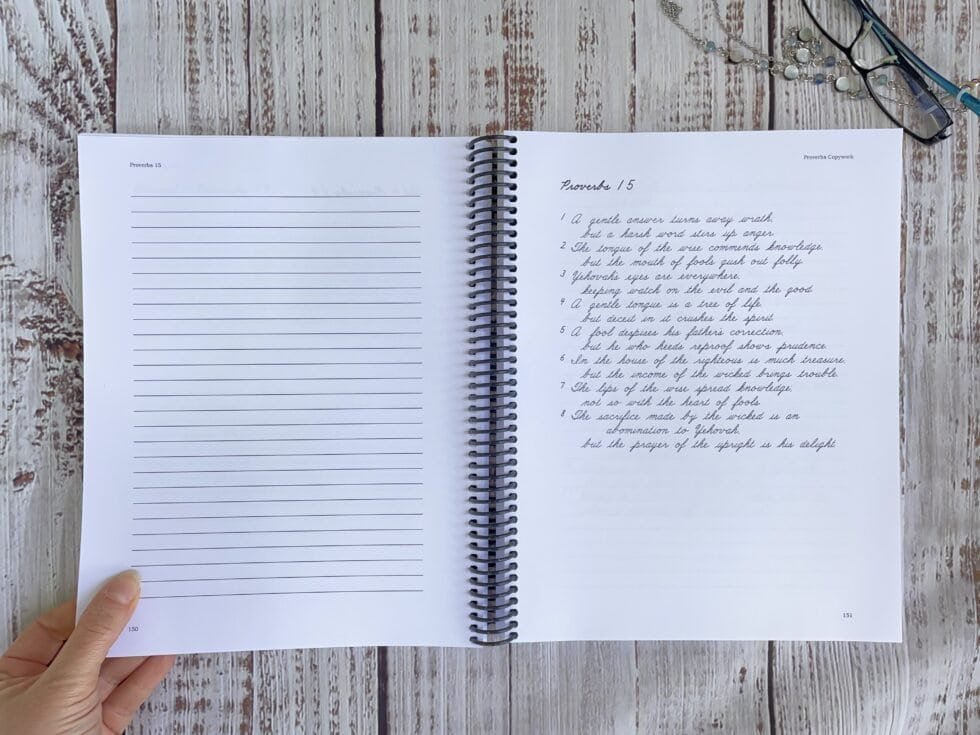 Proverbs 15
150
Proverbs Copywork
Proverbs 15
1 A gentle answer turns away wrath,
but a harsh word stirs up anger.
2 The tongue of the wise commends knowledge,
but the mouth of fools gush out folly.
3 Yehovah's eyes are everywhere,
keeping watch on the evil and the good.
4 A gentle tongue is a tree of life,
but deceit in it crushes the spirit.
5 A fool despises his father's correction,
but he who heeds reproof shows prudence.
6 In the house of the righteous is much treasure,
but the income of the wicked brings trouble.
7 The lips of the wise spread knowledge;
not so with the heart of fools.
8 The sacrifice made by the wicked is an
abomination to Yehovah,
but the prayer of the upright is his delight.
151